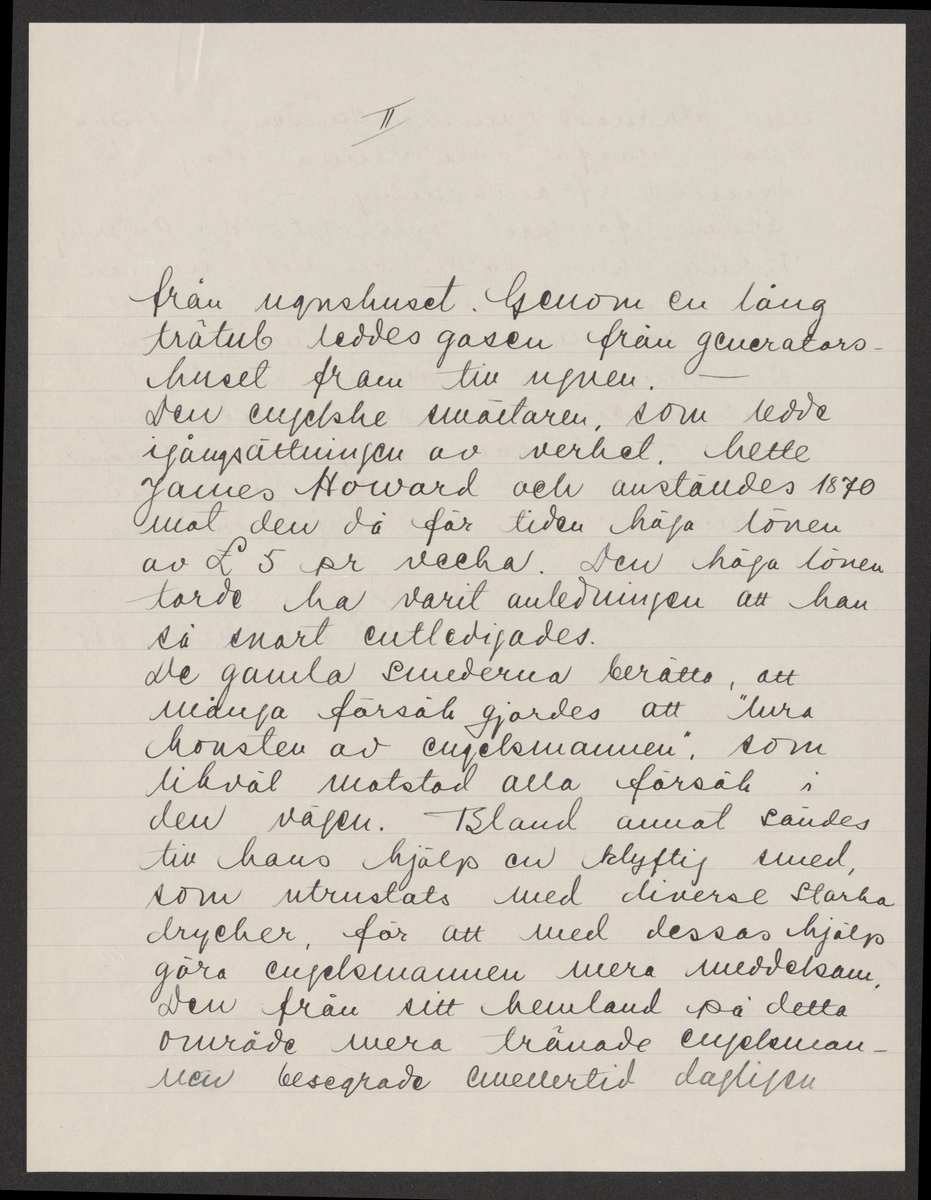 II
från ugnshuset. Genom en lång
trätub leddes gasen från generators-
huset fram till ugnen. —
Den engelske smältaren, som ledde
igångsättningen av verket, hette
James Howard och anställdes 1870
mot den då för tiden höga lönen
av £ 5 pr vecka. Den höga lönen
torde ha varit anledningen att han
så snart entledigades.
De gamla smederna berätta, att
många försök gjordes att "lura
konsten av engelsmannen", som
likväl motstod alla försök i
den vägen. Bland annat sändes
till hans hjälp en klyftig smed,
som utrustats med diverse starka
drycker, för att med dessas hjälp
göra engelsmannen mera meddelsam.
Den från sitt hemland på detta
område mera tränade engelsman-
nen besegrade emellertid dagligen